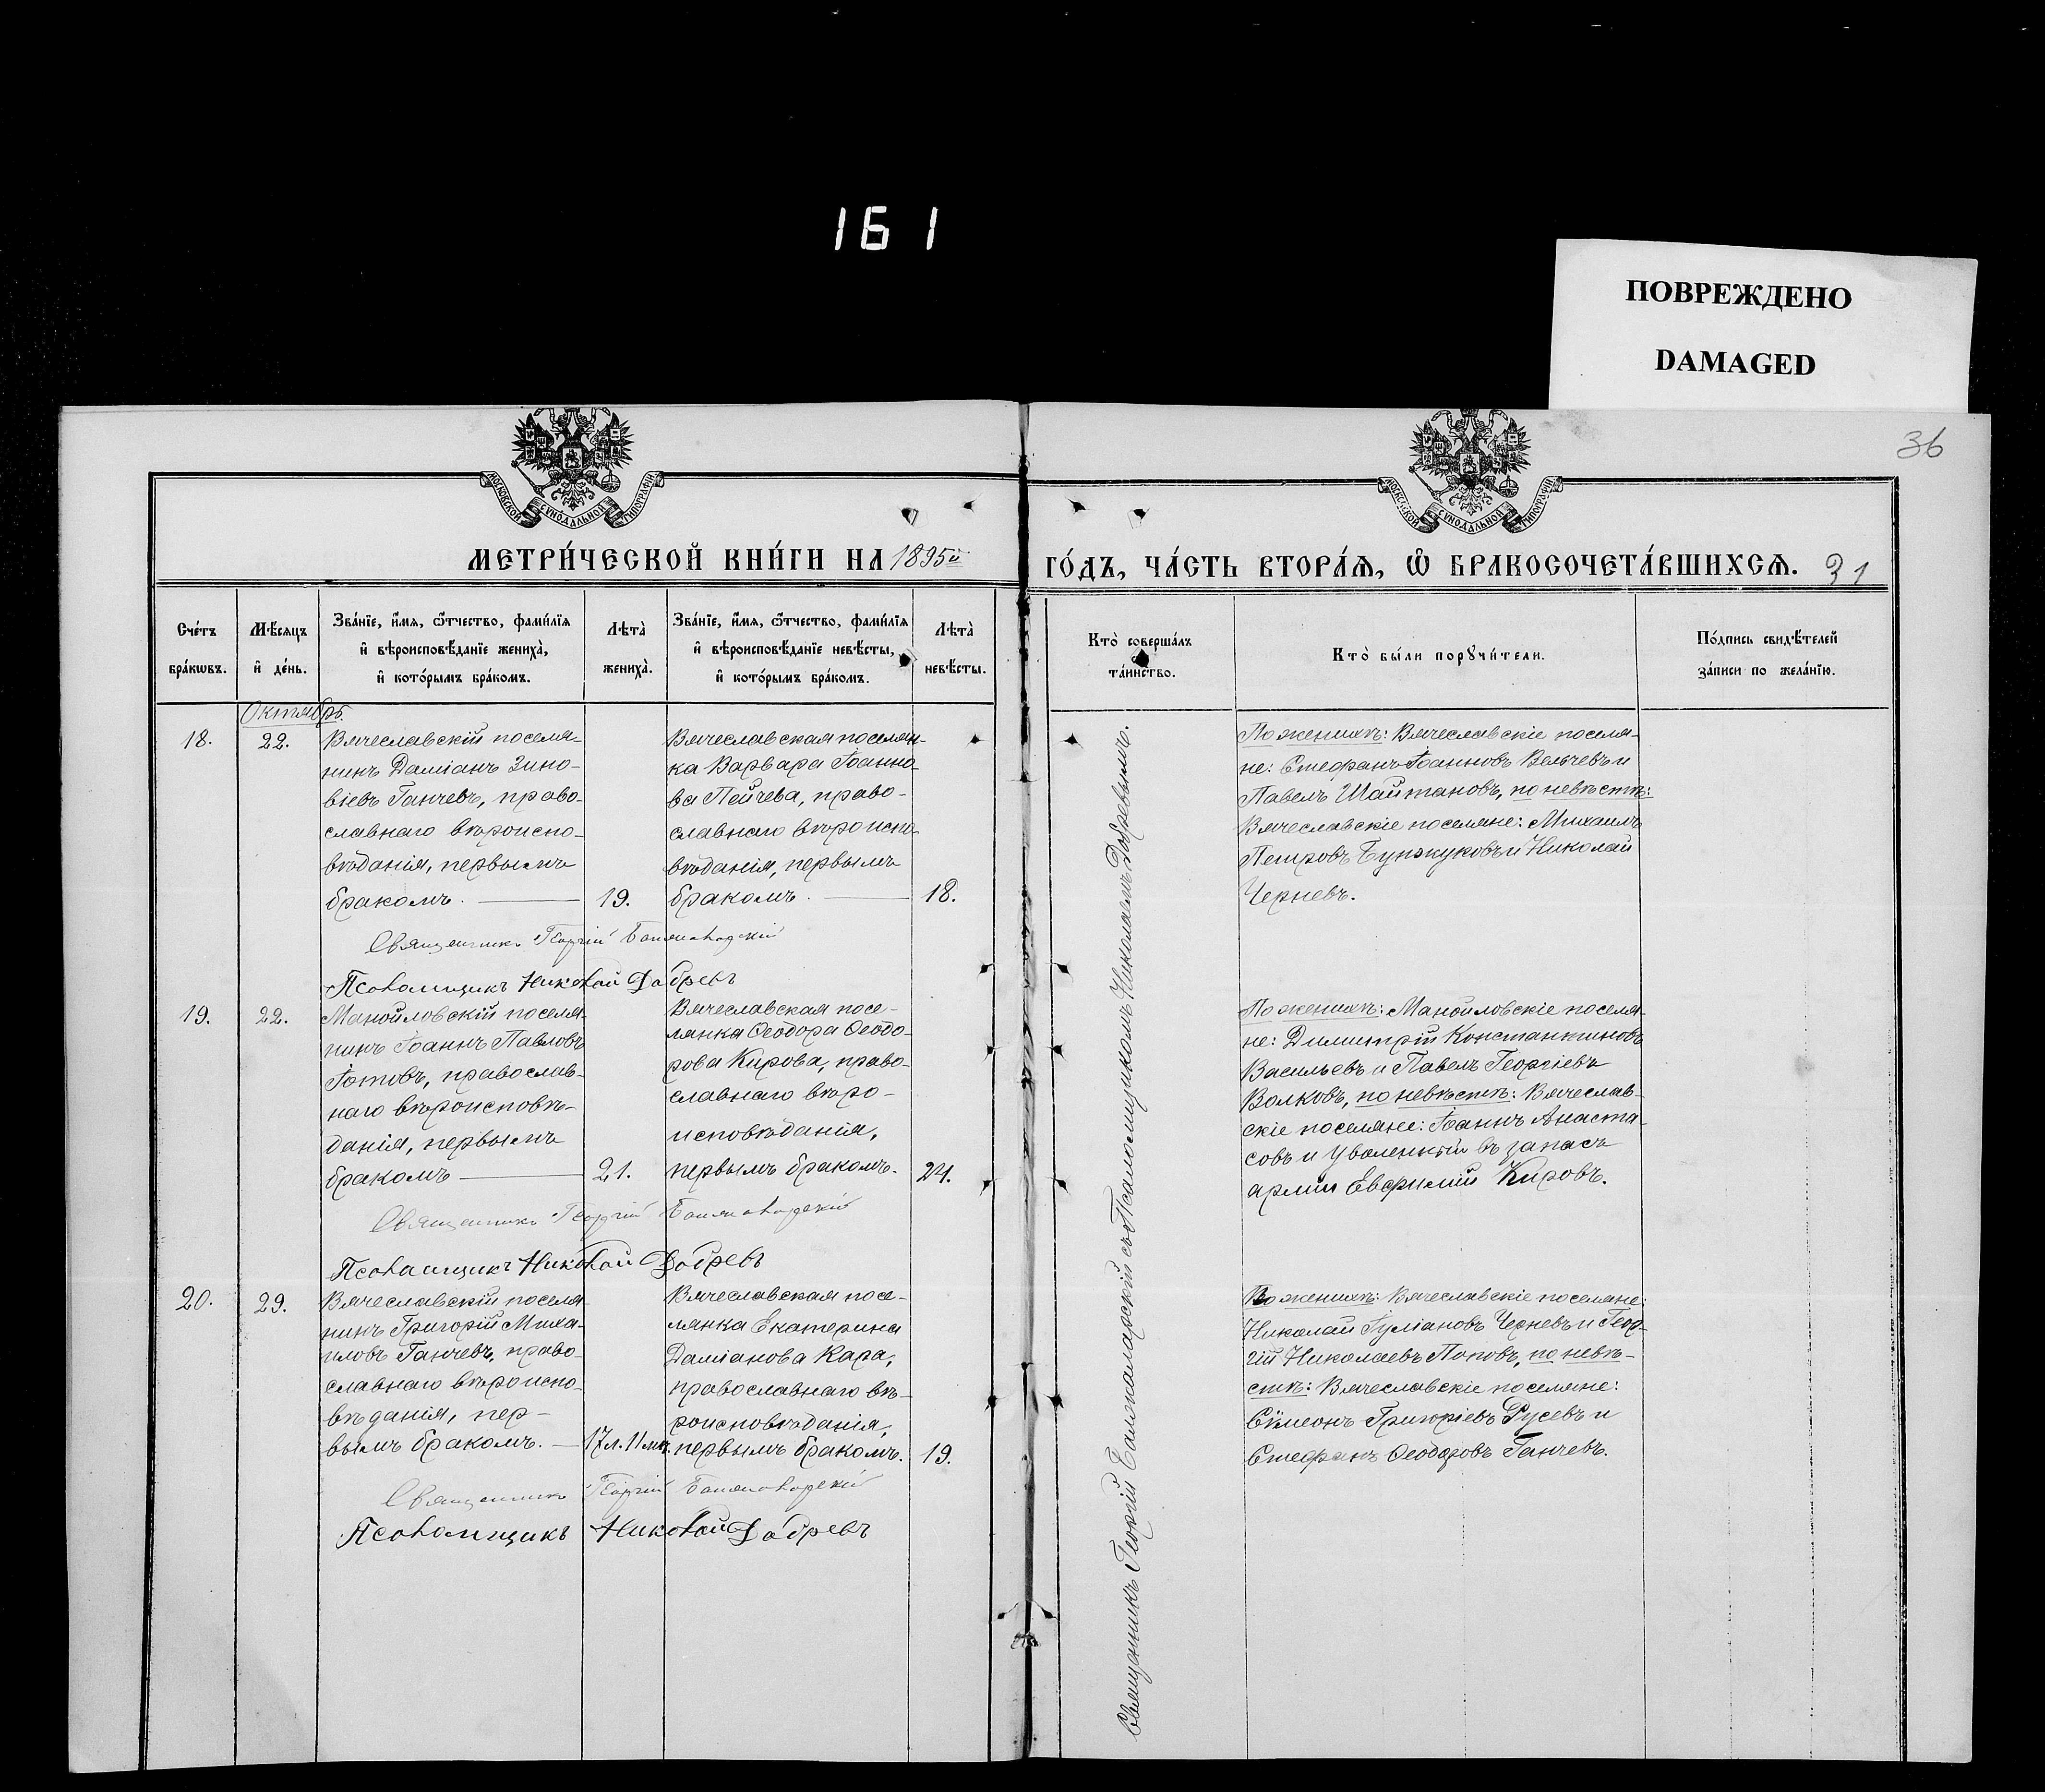 161
ПОВРЕЖДЕНО
DAMAGED
36
МОСКОВСКОЙ СѴНОДАЛЬНОЙ ТИПОГРАФІИ
МОСКОВСКОЙ СѴНОДАЛЬНОЙ ТИПОГРАФІИ
МЕТРИ́ЧЕСКОЙ КНИ́ГИ НА 1895й ГО́ДЪ, ЧА́СТЬ ВТОРА́Ѧ, Ѡ҆ БРАКОСОЧЕТА́ВШИХСѦ. 31
Сче́тъ
бра́кωвъ.
Мѣ́сяцъ
и҆ де́нь.
Зва́нїе, и҆́мя, ѻ҆́тчество, фами́лїя
и҆ вѣроисповѣ́данїе жениха̀,
и҆ кото́рымъ бра́комъ.
Лѣта̀
жениха̀.
Зва́нїе, и҆́мя, ѻ҆́тчество, фами́лїя
и҆ вѣроисповѣ́данїе невѣ́сты,
и҆ кото́рымъ бра́комъ.
Лѣта̀
невѣ́сты.
Кто̀ соверша́лъ
та́инство.
Кто̀ бы́ли порꙋчи́тели.
По́дпись свидѣ́телей
за́писи по жела́нїю.
Октябрь.
18.
22.
Вячеславскій поселя-
нинъ Даміанъ Зино-
віевъ Ганчевъ, право-
славнаго вѣроиспо-
вѣданія, первымъ
бракомъ.
19.
Вячеславская поселян-
ка Варвара Іоанно-
ва Пейчева, право-
славнаго вѣроиспо-
вѣданія, первымъ
бракомъ.
18.
По женихѣ: Вячеславскіе поселя-
не: Стефанъ Іоанновъ Вельчевъ и
Павелъ Шайтановъ, по невѣстѣ:
Вячеславскіе поселяне: Михаилъ
Петровъ Бунжуковъ и Николай
Черневъ.
Священникъ Георгій
Псаломщикъ Николай Добревъ
19.
22.
Манойловскій поселя-
нинъ Іоаннъ Павловъ
Іотовъ, православ-
наго вѣроисповѣ-
данія, первымъ
бракомъ
21.
Вячеславская посе-
лянка Ѳеодора Ѳеодо-
рова Кирова, право-
славнаго вѣро-
исповѣданія,
первымъ бракомъ.
24.
По женихѣ: Манойловскіе поселя-
не: Димитрій Константиновъ
Васильевъ и Павелъ Георгіевъ
Волковъ, по невѣстѣ: Вячеслав-
скіе поселяне: Іоаннъ Анаста-
совъ и уволенный въ запасъ
арміи Евфимій Кировъ.
Священникъ Георгій
Псаломщикъ Николай Добревъ
20.
29.
Вячеславскій поселя-
нинъ Григорій Миха-
иловъ Ганчевъ, право-
славнаго вѣроиспо-
вѣданія, пер-
вымъ бракомъ.
17л. 11мц.
Вячеславская посе-
лянка Екатерина
Даміанова Кара,
православнаго вѣ-
роисповѣданія,
первымъ бракомъ.
19.
По женихѣ: Вячеславскіе поселяне:
Николай Іуліановъ Черневъ и Геор-
гій Николаевъ Поповъ, по невѣ-
стѣ: Вячеславскіе поселяне:
Сѵмеонъ Григоріевъ Русевъ и
Стефанъ Ѳеодоровъ Ганчевъ.
Священникъ Георгій
Псаломщикъ Николай Добревъ
Священникъ Георгій съ Псаломщикомъ Николаемъ Добревымъ.